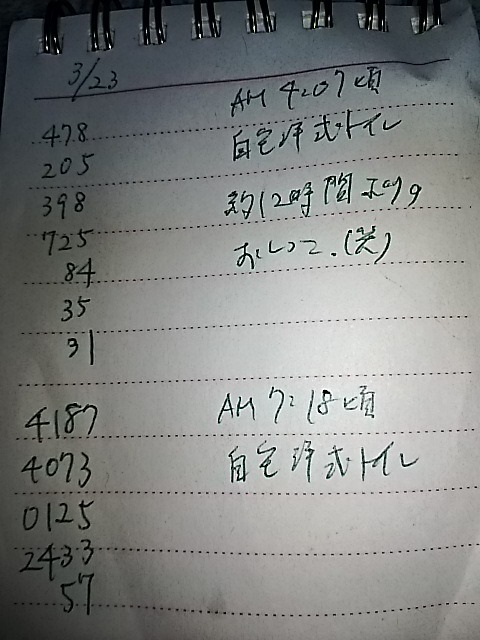 3/23
AM 4:07頃
478
自宅洋式トイレ
205
398
約12時間ぶりの
725
おしっこ.(笑)
84
35
31
4187
AM 7:18頃
4073
自宅洋式トイレ
0125
2433
57